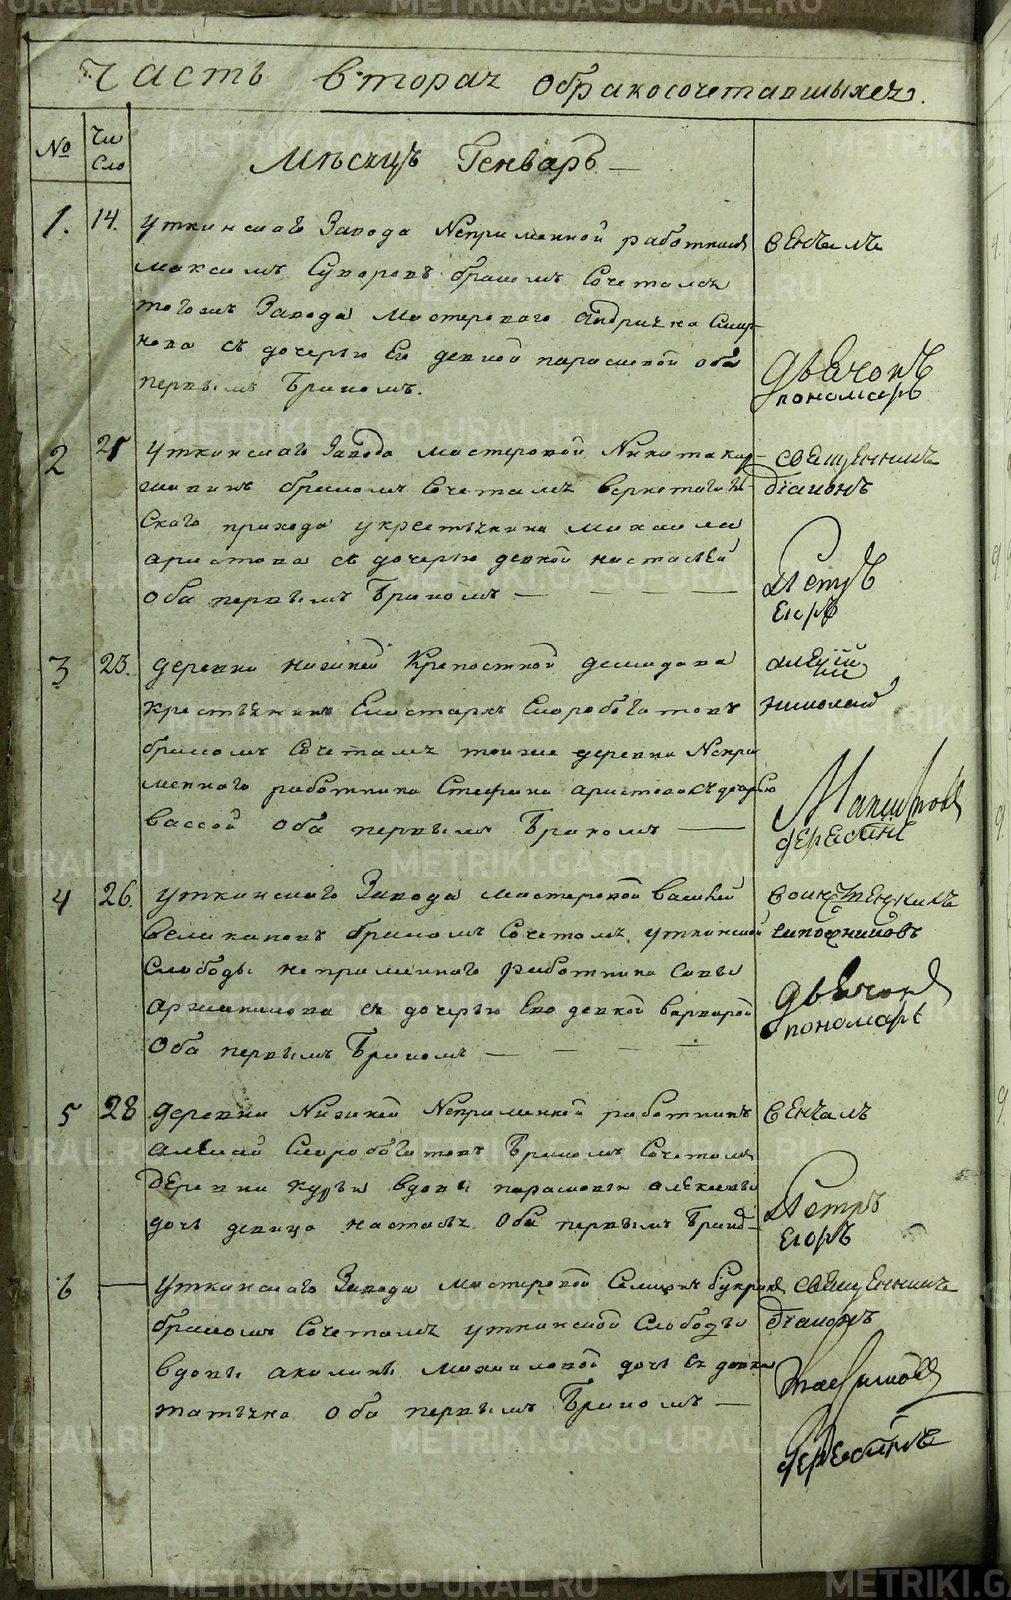 Часть вторая о бракосочетавшыхся.
№
Чи
сло
Мѣсяцъ Генварь
1.
14.
Уткинскаго Завода Непременной работникъ
Максимъ Суворовъ бракомъ Сочетался
тогожъ Завода Мастероваго Андрияна Смир-
нова съ дочерью Его девкой параскевой оба
первымъ Бракомъ.
венчалъ
Дьячокъ
пономарь
2
21
Уткинскаго Завода мастеровой Никита
бракомъ Сочетался
скаго прихода у крестьянина михаила
аристова съ дочерью девкой настасьей
оба первымъ Бракомъ
священникъ
діаконъ
Петръ
Егоръ
3
23.
деревни нижней Крепостной демидова
крестьянинъ Скоробогатовъ
бракомъ Сочетался тоижъ деревни Непри
меннаго работника Стефана аристова съ дочерью
вассой оба первымъ Бракомъ
николай
4
26.
Уткинскаго Завода мастеровой Василей
великановъ бракомъ Сочетался уткинской
Слободы непременнаго работника Савы
съ дочерью Ево девкой варварой
оба первымъ Бракомъ
Дьячокъ
пономарь
5
28
деревни Нижней Непременной работникъ
алексей Скоробогатовъ Бракомъ Сочетался
деревни курьи вдовы парасковьи
дочь девица настасья оба первымъ
венчалъ
Петръ
Егоръ
6
Уткинскаго Завода мастеровой
бракомъ Сочетался уткинской Слободы
вдовы акилины михаиловой дочь ея девка
татьяна оба первымъ Бракомъ
священникъ
діаконъ
METRIKI.GASO-URAL.RU